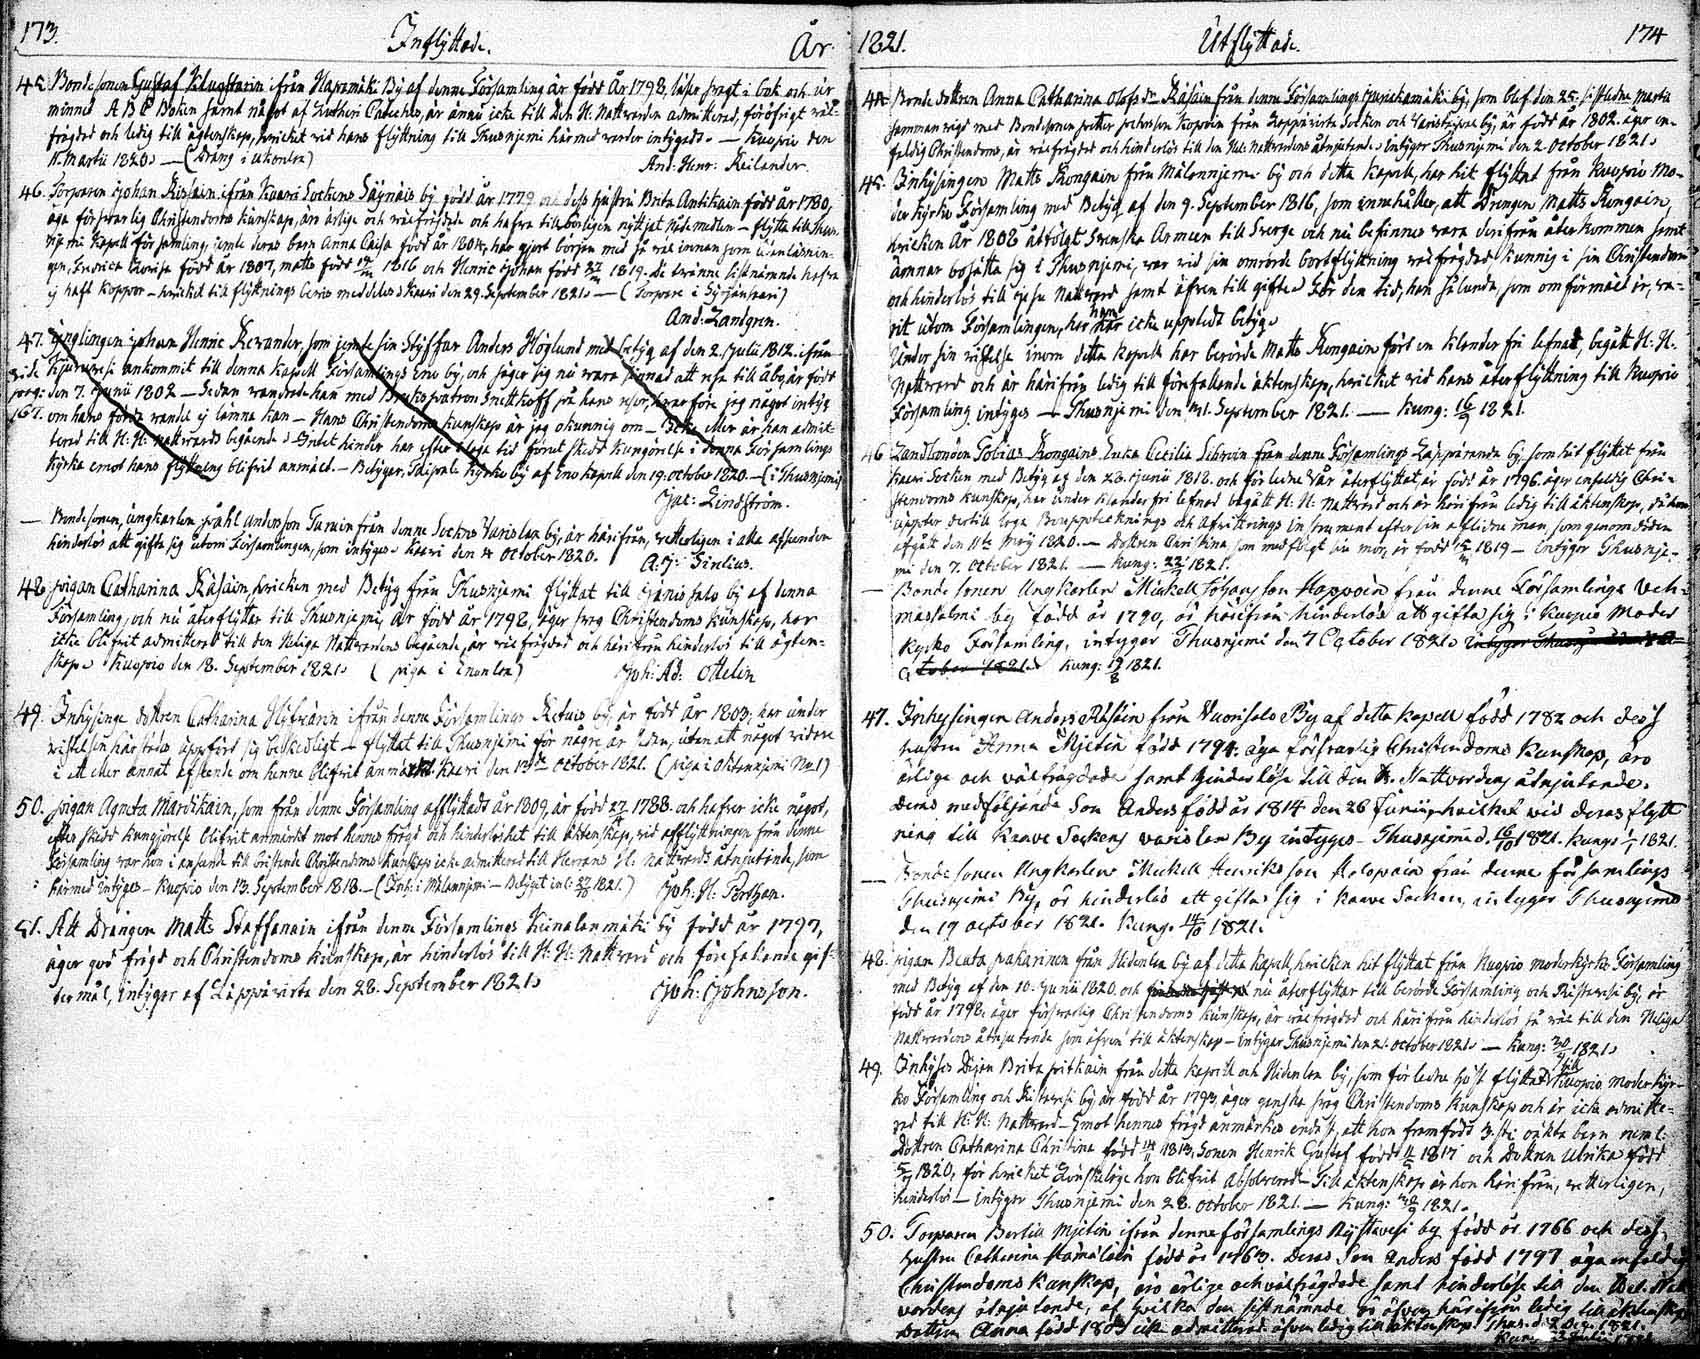 173. Inflyttade. År
45. Bondesonen Gustaf Klugstarin ifrån Hapamäki By af denne Församling är född År 1798, läser svagt i bok och ur
minnet A B C Boken samt något af Lutheri Cateches, är ännu icke till den H. Nattvarden admitterad, föröfrigt väl-
frägdad och ledig till ägtenskap, hvilket vid hans flyttning till Thusnjemi härmed warder intygadt. — Kuopio den
11. Martii 1820. — (Dräng i Ukonlax)
And: Henr: Keilander.
46. Torparen Johan Rissain ifrån Kaavi Sockens Säynäis by född år 1779 och dess hustru Brita Antikain född år 1780,
äga försvarlig Christendoms kunskap, äro ärlige och wälfrägdade och hafva tillbörligen nyttjat Nådemedlen — flytta till Thus-
njemi Kapell församling, jemte deras barn Anna Caisa född år 1804, har gjort början med så väl innan som utanläsnin-
gen, Fredrica Lovisa född år 1807, Matts född 1816 och Henric Johan född 1819. De tränne sistnämnde hafva
ej haft koppor — hvilket till flyttnings bevis meddelas. Kaavi den 29. September 1821. — (Torpare i Syvjänsaari)
And: Landgren.
47. Ynglingen Johan Henric Rexander, som jemte sin Styffar Anders Höglund med betyg af den 2. Julii 1812. ifrån
ide Kjuruvesi ankommit till denna Kapell Församlings Eno by, och säger sig nu vara sinnad att resa till Åbo, är född
pag: den 7. Junii 1802 — Sedan vandrade han med Brukspatron Snettkoff på hans resor, hvarföre jag något intyg
167. om hans förda vandel ej lämna kan — Hans Christendoms kunskap är jag okunnig om — Icke eller är han admit-
terad till H. H. Nattvards begående. Intet hinder har efter i laga tid förut skedt kungörelse i denna Församlings
kyrka emot hans flyttning blifvit anmält. — Betygar, Taipale kyrko by af Eno Kapell den 19. October 1820. — (i Thusnjemi)
Jac: Lindström.
— Bondesonen, ungkarlen Påhl Andersson Turuin från denne Sockns Varislax by, är härifrån, vetterligen i alla afseenden
hinderlös att gifta sig utom Församlingen, som intygas. Kaavi den 4 October 1820. A. J: Sirelius.
48. Pigan Catharina Räsäin, hvilken med Betyg från Thusnjemi flyttat till Jänissalo by af denna
Församling, och nu återflyttar till Thusnjemi, är född år 1798, äger svag Christendoms kunskap, har
icke blifvit admitterad till den Heliga Nattvardens begående, är wälfrägdad och härifrån hinderlös till ägten-
skap. Kuopio den 18. September 1821. (piga i Enonlax) Joh: Ad: Ottelin
49. Inhysinge dottren Catharina Hyfvärin ifrån denne Församlings Retuis by, är född år 1803, har under
vistelsen härstädes uppfört sig beskedligt — flyttat till Thusnjemi för några år sedan, utan att något vidare
i ett eller annat afseende om henne blifvit anmärkt. Kaavi den 13de October 1821. (piga i Ohtanniemi No 1)
50. Pigan Agneta Mardikain, som från denne Församling afflyttade år 1809, är född 1788. och hafver icke något,
efter skedd kungjörelse blifvit anmärkt mot hennes frägd och hinderlöshet till äktenskap, vid afflyttningen från denne
Församling var hon i anseende till bristande Christendoms kunskap icke admitterad till Herrans H. Nattvards åtnjutande, som
härmed intygas — Kuopio den 13. September 1818. — (Inh: i Målannjemi — Betyget inl: 1821.) Joh: H. Porthan.
51. Att Drängen Matts Staffanain ifrån denne Församlings Keinalanmäki by född år 1797,
äger god frägd och Christendoms kunskap, är hinderlös till H: H: Nattvard och förefallande gif-
termål, intygar af Läppävirta den 28. September 1821.
Joh: Johnsson.
1821. Utflyttade. 174
44. Bonde dottren Anna Catharina Olofs dr Räsäin från denne Församlings Juurikamäki by, som blef den 25. sistledne Martii
samman vigd med Bondesonen Petter Johansson Kopoin från Leppävirta Socken och Varistaipal by, är född år 1802. äger en-
faldig Christendom, är wälfrägdad och hinderlös till den Hel: Nattvardens åtnjutande. Intygar Thusnjemi den 2 October 1821.
45. Inhysingen Matts Rongain från Målannjemi by och detta Kapell, har hit flyttat från Kuopio Mo-
der kyrko Församling med Betyg af den 9. September 1816, som innehåller, att Drengen Matts Rongain,
hvilken År 1808 åtföljt Svenska Armeen till Sverge och nu befinnes vara derifrån återkommen samt
ämnar bosätta sig i Thusnjemi, var vid sin omrörde bortflyttning välfrägdad kunnig i sin Christendom
och hinderlös till både Nattvard samt äfven till gifte. För den tid, han sålunda, som omförmält är, va-
rit utom Församlingen, har han icke uppledt betyg.
Under sin vistelse inom detta Kapell har berörde Matts Rongain fört en klander fri lefnad, begått H. H.
Nattvard och är härifrån ledig till förefallande äktenskap, hvilket vid hans återflyttning till Kuopio
Församling intyges — Thusnjemi den 21. September 1821. — Kung: 16/9 1821.
46 Landbonden Tobias Rongains Enka Cecilia Schroin från denne Församlings Lapparanda by, som hit flyttat från
Kaavi Socken med Betyg af den 28. Junii 1818. och förledne Vår återflyttat, är född år 1796. äger enfaldig Chri-
stendoms kunskap, har under klanderfri lefnad begått H: H: Nattvard och är härifrån ledig till äktenskap, då hon
uppviser dertill laga Bouppteknings och Afvittrings instrument efter sin aflidne man, som genom döden
afgått den 11te Maij 1820. — Dottren Christina som medföljt sin mor, är född 1819 — intygar Thusnje-
mi den 7. October 1821. — Kung: 1821.
— Bonde sonen Ungkarlen Mickell Johansson Hoppoin från denne Församlings Veh-
massalmi by född år 1790, är härifrån hinderlös att gifta sig i Kuopio Moder
kyrko Församling, intygar Thusnjemi den 7 October 1821.
Kung: 1821.
47. Inhysingen Anders Räsäin från Vuorisalo By af detta Kapell född 1782 och dess
hustru Anna Mjetin född 1794. äga försvarlig Christendoms Kunskap, äro
ärlige och välfrägdade samt hinderlöse till den H. Nattvardens åtnjutande.
Deras medföljande Son Anders född år 1814 den 26 Junii, hvilket wid deras flytt
ning till Kaave Sockens varislax By intyges. Thusnjemi d. 16/10 1821. Kungs 1821.
— Bonde sonen Ungkarlen Mickell Henriksson Holopain från denne församlings
Thusnjemi By, är hinderlös att gifta sig i Kaave Socken, intygar Thusnjemi
den 19 october 1821. Kung. 14/10 1821.
48. Pigan Beata Pakarinen från Hidenlax by af detta Kapell, hvilken hit flyttat från Kuopio moderkyrko Församling
med Betyg af den 10. Junii 1820. och nu återflyttar till berörde Församling och Ristavesi by, är
född år 1798. äger försvarlig Christendoms kunskap, är wälfrägdad och härifrån hinderlös så väl till den Heliga
Nattvardens åtnjutande som äfven till äktenskap — Intygar Thusnjemi den 21. October 1821. — Kung: 1821.
49. Inhyses Pigan Brita Pitkäin från detta Kapell och Hidenlax by, som förledne höst flyttat till Kuopio moderkyr-
ko Församling och Ristavesi by är född år 1793, äger ganska svag Christendoms kunskap och är icke admitte-
rad till H: H: Nattvard — Emot hennes frägd anmärkes endast, att hon framfödt 3. st: oäkta barn neml:
Dottren Catharina Christina född 1813, Sonen Henrik Gustaf född 1817 och Dottren Ulrika född
1820, för hvilket Lönskaläge hon blifvit absolverad — Till äktenskap är hon härifrån, vetterligen,
hinderlös — Intygar Thusnjemi den 28. october 1821. — Kung: 1821.
50. Torparen Bertill Mjetin ifrån denne församlings Rystavesi by född år 1766 och dess
hustru Catharina Hämäläin född år 1763. Deras Son Anders född 1797 äga enfaldig
Christendoms Kunskap, äro ärlige och välfrägdade samt hinderlöse till den Hel. Natt
vardens åtnjutande, af hvilka den sistnämnde är äfven härifrån ledig till äktenskap
Dottren Anna född 1803 icke admitterad äfven ledig till äktenskap. Thus. d. 2 Dec. 1821.